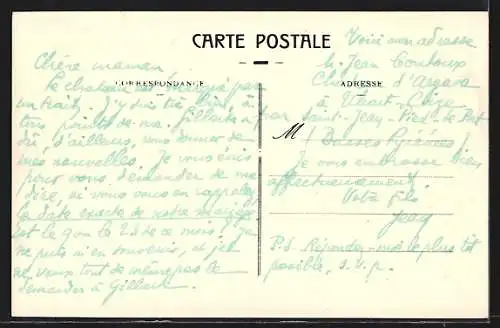 CARTE POSTALE
CORRESPONDANCE
ADRESSE
Chère maman
Le chateau est par
un trait. J'y suis très bien à
tous points de vue. Gillette a
dû, d'ailleurs, vous donner de
mes nouvelles. Je vous écris
pour vous demander de me
dire, si vous vous en rappelez,
la date exacte de notre mariage
est le 9 ou le 2 de ce mois. Je
ne puis m'en souvenir, et je
ne veux tout de même pas le
demander à Gillette.
Voici mon adresse
M. Jean
d'
à Uhart-Cize
par Saint-Jean-Pied-de-Port
M Basses Pyrénées
je vous embrasse bien
affectueusement.
Votre fils
Jean
P.S. Répondez-moi le plus tôt
possible, s.v.p.